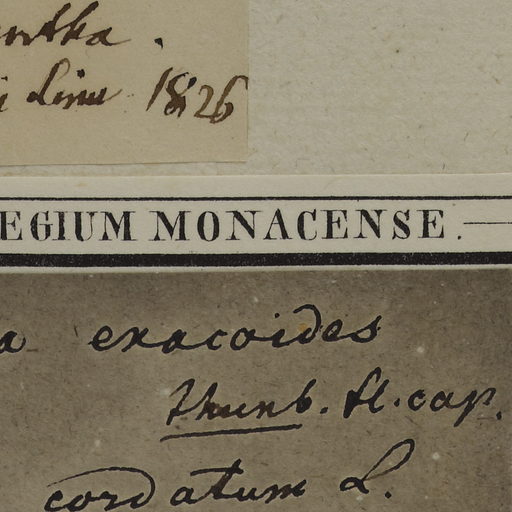 antha.
i Linn 1826
EGIUM MONACENSE.
a exacoides
thunb. fl. cap.
cordatum L.